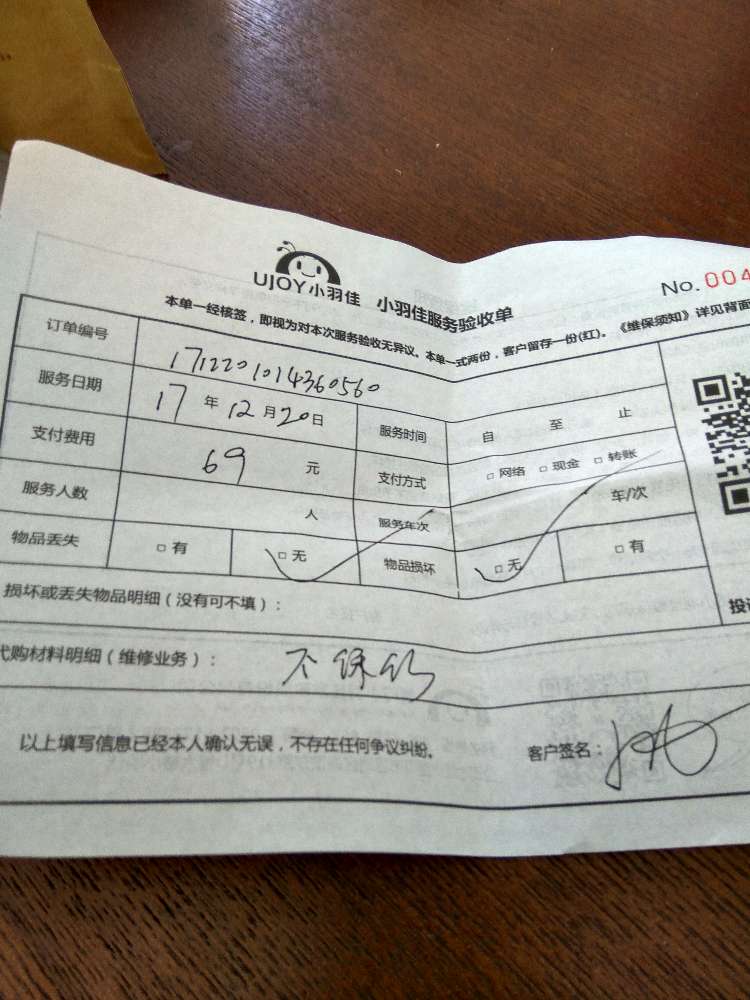 UJOY小羽佳 小羽佳服务验收单
No.004
本单一经核签，即视为对本次服务验收无异议。本单一式两份，客户留存一份(红)。《维保须知》详见背面
订单编号 1712201014360560
服务日期 17 年 12 月 20 日 服务时间 自 至 止
支付费用 69 元 支付方式 □ 网络 □ 现金 □ 转账
服务人数 人 服务车次 车/次
物品丢失 □ 有 □ 无 物品损坏 □ 无 □ 有
损坏或丢失物品明细（没有可不填）：
投
代购材料明细（维修业务）： 不保修
以上填写信息已经本人确认无误，不存在任何争议纠纷。 客户签名：